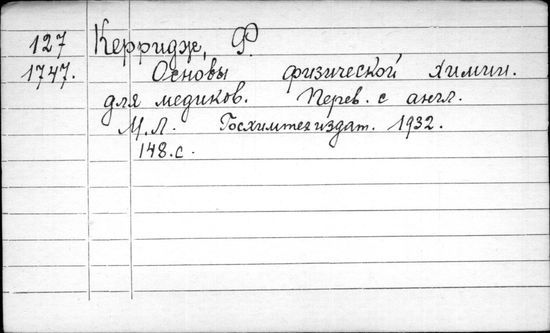 127 Керридж, Ф.
1747. Основы физической химии.
для медиков. Перев. с англ.
М.Л. Госхимтехиздат. 1932.
148.с.